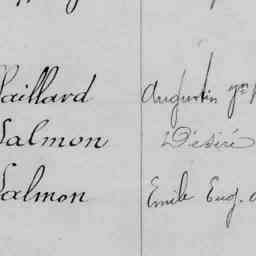 Paillard Augustin
Salmon Désiré
Salmon Emile Eug.